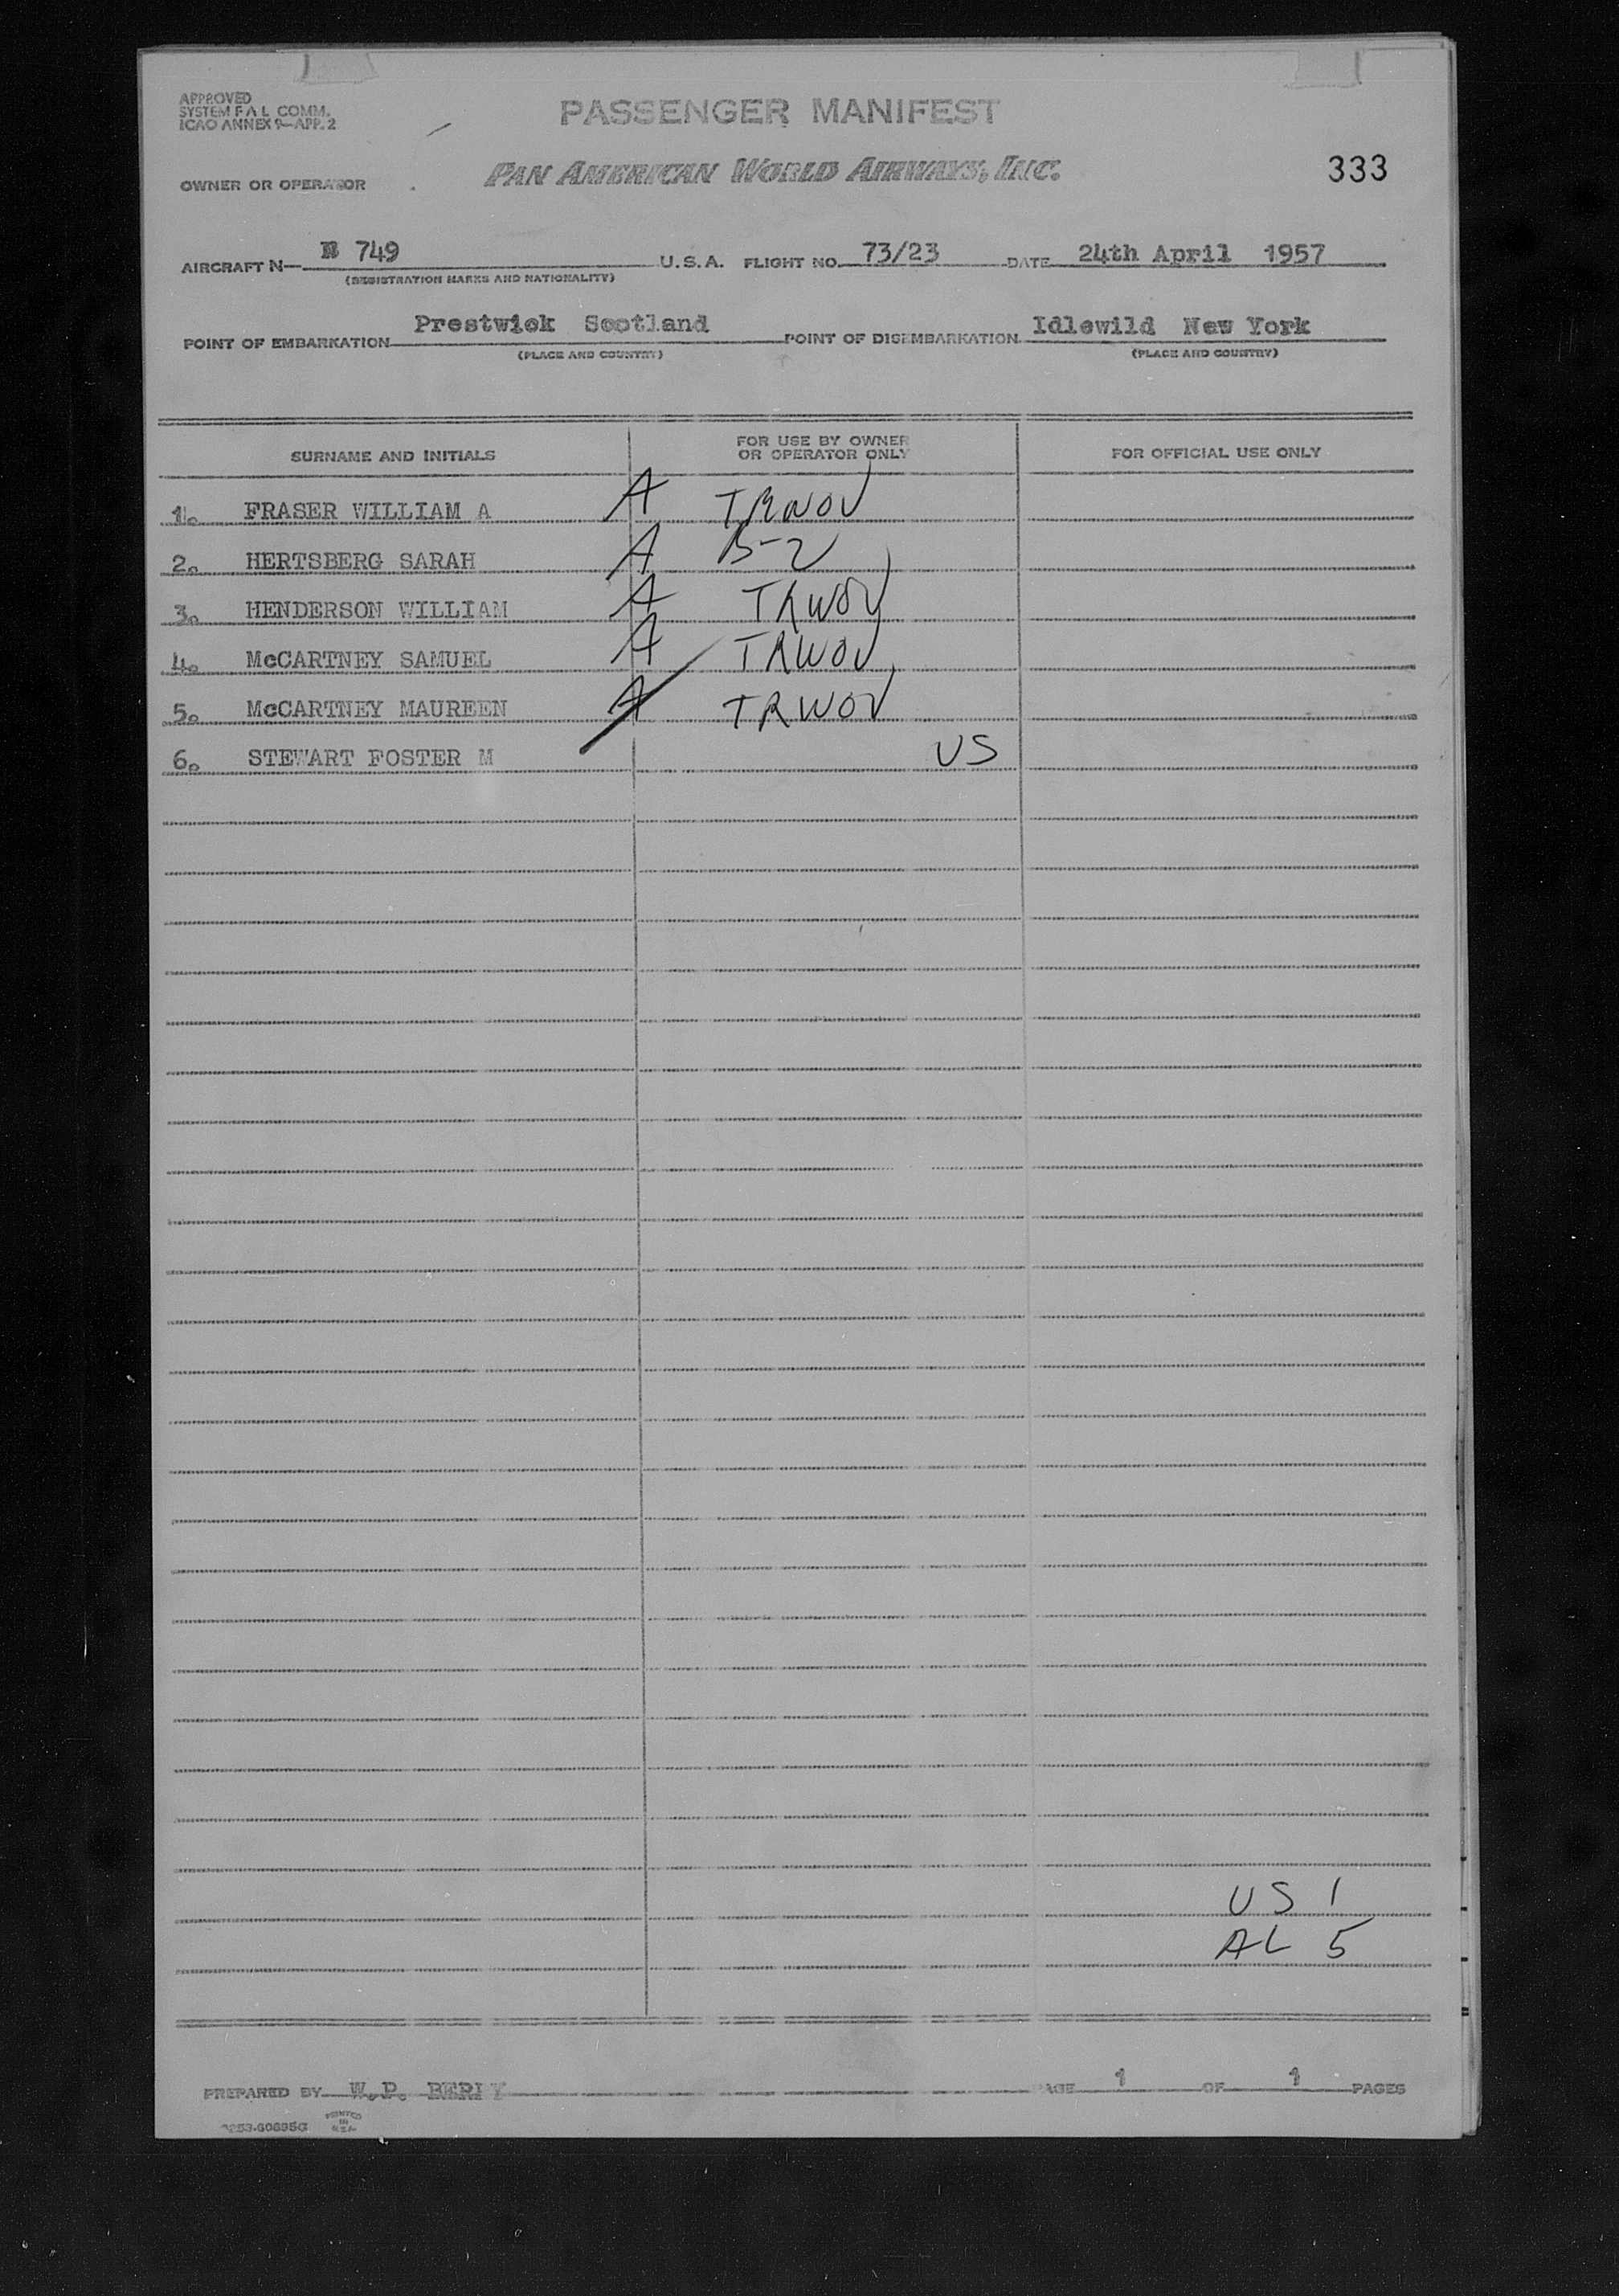 APPROVED
SYSTEM F A L COMM.
ICAO ANNEX 9—APP. 2
PASSENGER MANIFEST
OWNER OR OPERATOR
PAN AMERICAN WORLD AIRWAYS, INC.
333
AIRCRAFT N— 749 U.S.A. FLIGHT NO. 73/23 DATE 24th April 1957
(REGISTRATION MARKS AND NATIONALITY)
POINT OF EMBARKATION Prestwick Scotland POINT OF DISEMBARKATION Idlewild New York
(PLACE AND COUNTRY) (PLACE AND COUNTRY)
SURNAME AND INITIALS FOR USE BY OWNER OR OPERATOR ONLY FOR OFFICIAL USE ONLY
1. FRASER WILLIAM A A TRWOV
2. HERTSBERG SARAH A B-2
3. HENDERSON WILLIAM A TRWOV
4. McCARTNEY SAMUEL A TRWOV
5. McCARTNEY MAUREEN A TRWOV
6. STEWART FOSTER M US
US 1
AL 5
PREPARED BY W.P. PAGE 1 OF 1 PAGES
PRINTED
IN
U.S.A.